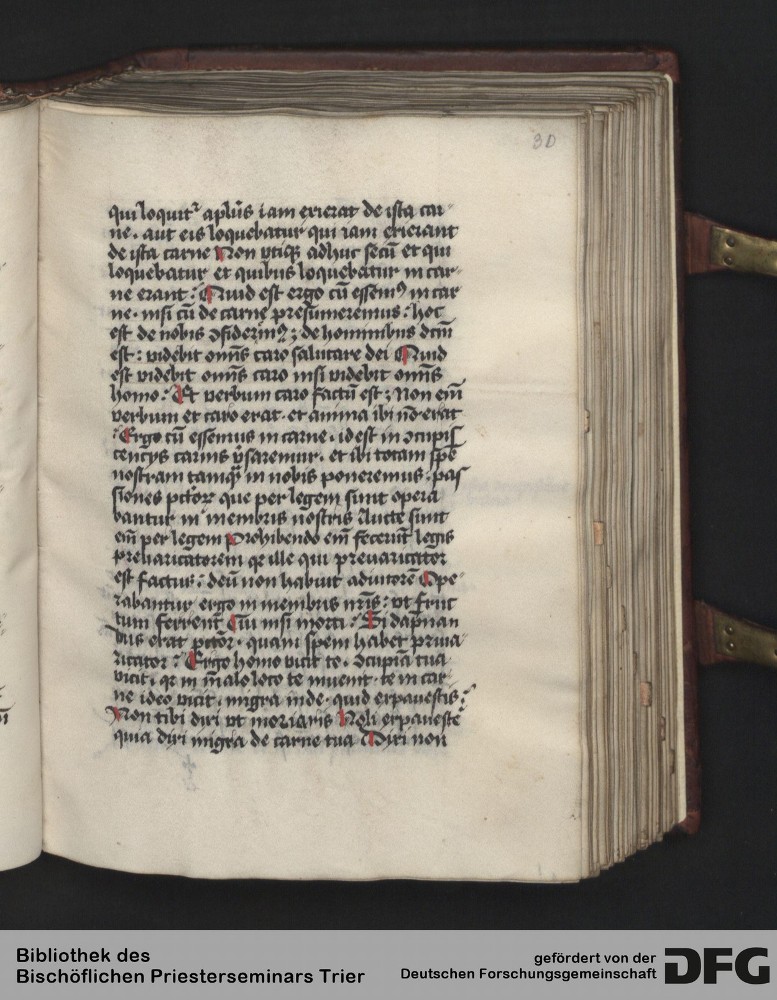 30
qui loquit᷑ apl̃us iam exierat de ista car-
ne. aut eis loquebatur qui iam exierant
de ista carne Non vtiqꝫ adhuc secū et qui
loquebatur et quibus loquebatur in car-
ne erant: Quid est ergo cū essemꝰ in car
ne. nisi cū de carne presumeremus: hoc
est de nobis ꝯfiderimꝰ; de hominibus dcm̄
est: videbit om̄is caro salutare dei Quid
est videbit om̄is caro nisi videbit om̄is
homo: Et verbum caro factū est; Non em̄
verbum et caro erat. et anima ibi nō erat
: Ergo cū essemus in carne. id est in ꝯcupis
cencijs carnis v̓saremur. et ibi totam spē
nostram tamqꝫ in nobis poneremus. pas
siones pctōrꝫ que per legem sunt opera
bantur in membris nostris Aucte sunt
em̄ per legem Prohibendo em̄ fecerūt legis
preuaricatorem qꝛ ille qui preuaricator
est factus: deū non habuit adiutorē Ope
rabantur ergo in membris nr̄is: vt fruc
tum ferrent Cui nisi morti: Si dampnan
dus erat pctōr. quam spem habet preua
ricator: Ergo homo vicit te. ꝯcupīa tua
vicit. qꝛ in malo loco te inuenit. te in car
ne ideo vicit. migra inde. quid expauestis:
Non tibi dixi vt moriaris Noli expauesce
quia dixi migra de carne tua Dixi non
Bibliothek des
Bischöflichen Priesterseminars Trier
gefördert von der
Deutschen Forschungsgemeinschaft
DFG